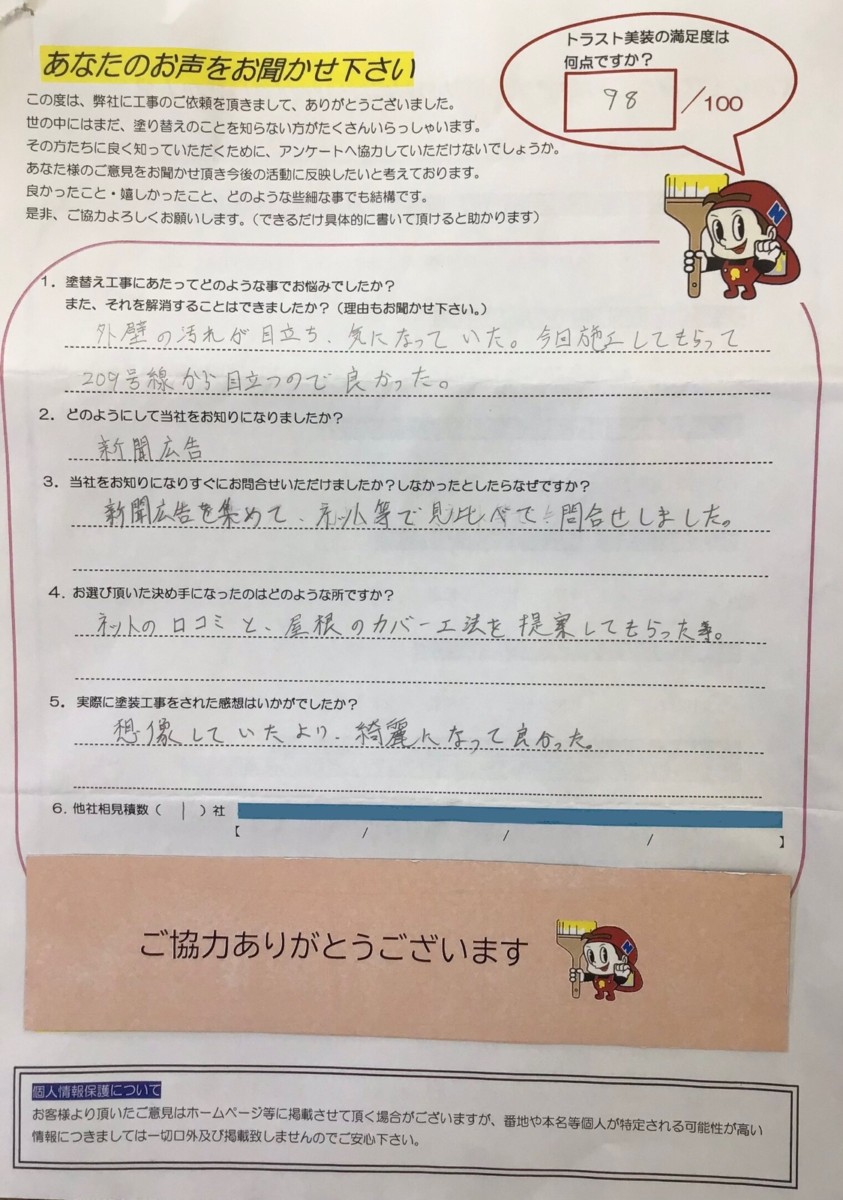 あなたのお声をお聞かせ下さい
トラスト美装の満足度は
何点ですか?
98 /100
この度は、弊社に工事のご依頼を頂きまして、ありがとうございました。
世の中にはまだ、塗り替えのことを知らない方がたくさんいらっしゃいます。
その方たちに良く知っていただくために、アンケートへ協力していただけないでしょうか。
あなた様のご意見をお聞かせ頂き今後の活動に反映したいと考えております。
良かったこと・嬉しかったこと、どのような些細な事でも結構です。
是非、ご協力よろしくお願いします。(できるだけ具体的に書いて頂けると助かります)
N
1. 塗替え工事にあたってどのような事でお悩みでしたか?
また、それを解消することはできましたか?(理由もお聞かせ下さい。)
外壁の汚れが目立ち、気になっていた。今回施工してもらって
209号線から目立つので良かった。
2. どのようにして当社をお知りになりましたか?
新聞広告
3. 当社をお知りになりすぐにお問合せいただけましたか?しなかったとしたらなぜですか?
新聞広告を集めて、ネット等で見比べて問合せしました。
4. お選び頂いた決め手になったのはどのような所ですか?
ネットの口コミと、屋根のカバー工法を提案してもらった事。
5. 実際に塗装工事をされた感想はいかがでしたか?
想像していたより、綺麗になって良かった。
6. 他社相見積数( 1 )社
【 / / / 】
ご協力ありがとうございます
N
個人情報保護について
お客様より頂いたご意見はホームページ等に掲載させて頂く場合がございますが、番地や本名等個人が特定される可能性が高い
情報につきましては一切口外及び掲載致しませんのでご安心下さい。